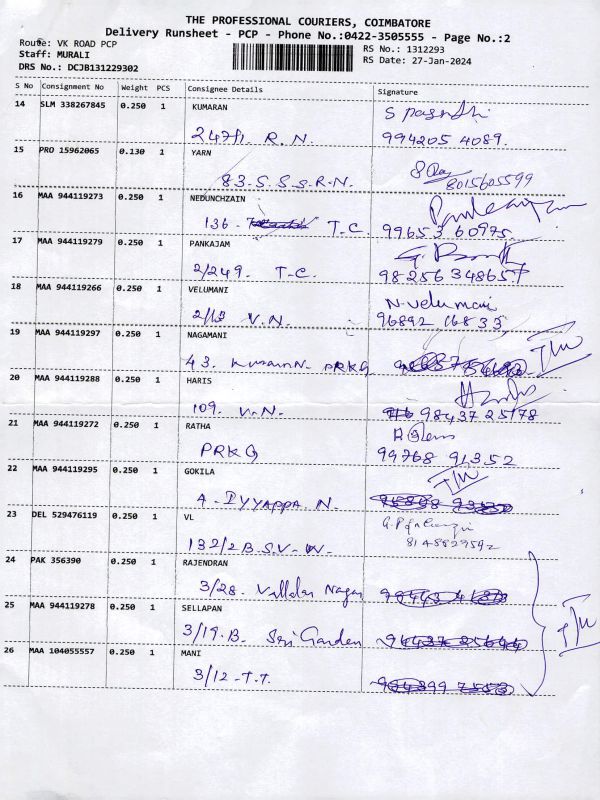 THE PROFESSIONAL COURIERS, COIMBATORE
Delivery Runsheet - PCP - Phone No.:0422-3505555 - Page No.:2
Route: VK ROAD PCP
RS No.: 1312293
Staff: MURALI
RS Date: 27-Jan-2024
DRS No.: DCJB131229302
S No Consignment No Weight PCS Consignee Details Signature
14 SLM 338267845 0.250 1 KUMARAN
R.N. 994205 4089.
15 PRO 15962065 0.130 1 YARN
83. S.S.S.R.N. 8015605599
16 MAA 944119273 0.250 1 NEDUNCHZAIN
136- T.C. 99653 60975
17 MAA 944119279 0.250 1 PANKAJAM
2/249. T-C. 98256 34865
18 MAA 944119266 0.250 1 VELUMANI N.velumani
2/13 V.N. 96892 16833
19 MAA 944119297 0.250 1 NAGAMANI
43. PRKG
20 MAA 944119288 0.250 1 HARIS
109. V.N. 98437 25178
21 MAA 944119272 0.250 1 RATHA
PRKG 99768 91352
22 MAA 944119295 0.250 1 GOKILA
4. IYYAPPA. N.
23 DEL 529476119 0.250 1 VL
132/2 B.S.V. 8148829592
24 PAK 356390 0.250 1 RAJENDRAN
3/28. Vallalar Nagar
25 MAA 944119278 0.250 1 SELLAPAN
3/19.B. Sri Garden
26 MAA 104055557 0.250 1 MANI
3/12-T.T.